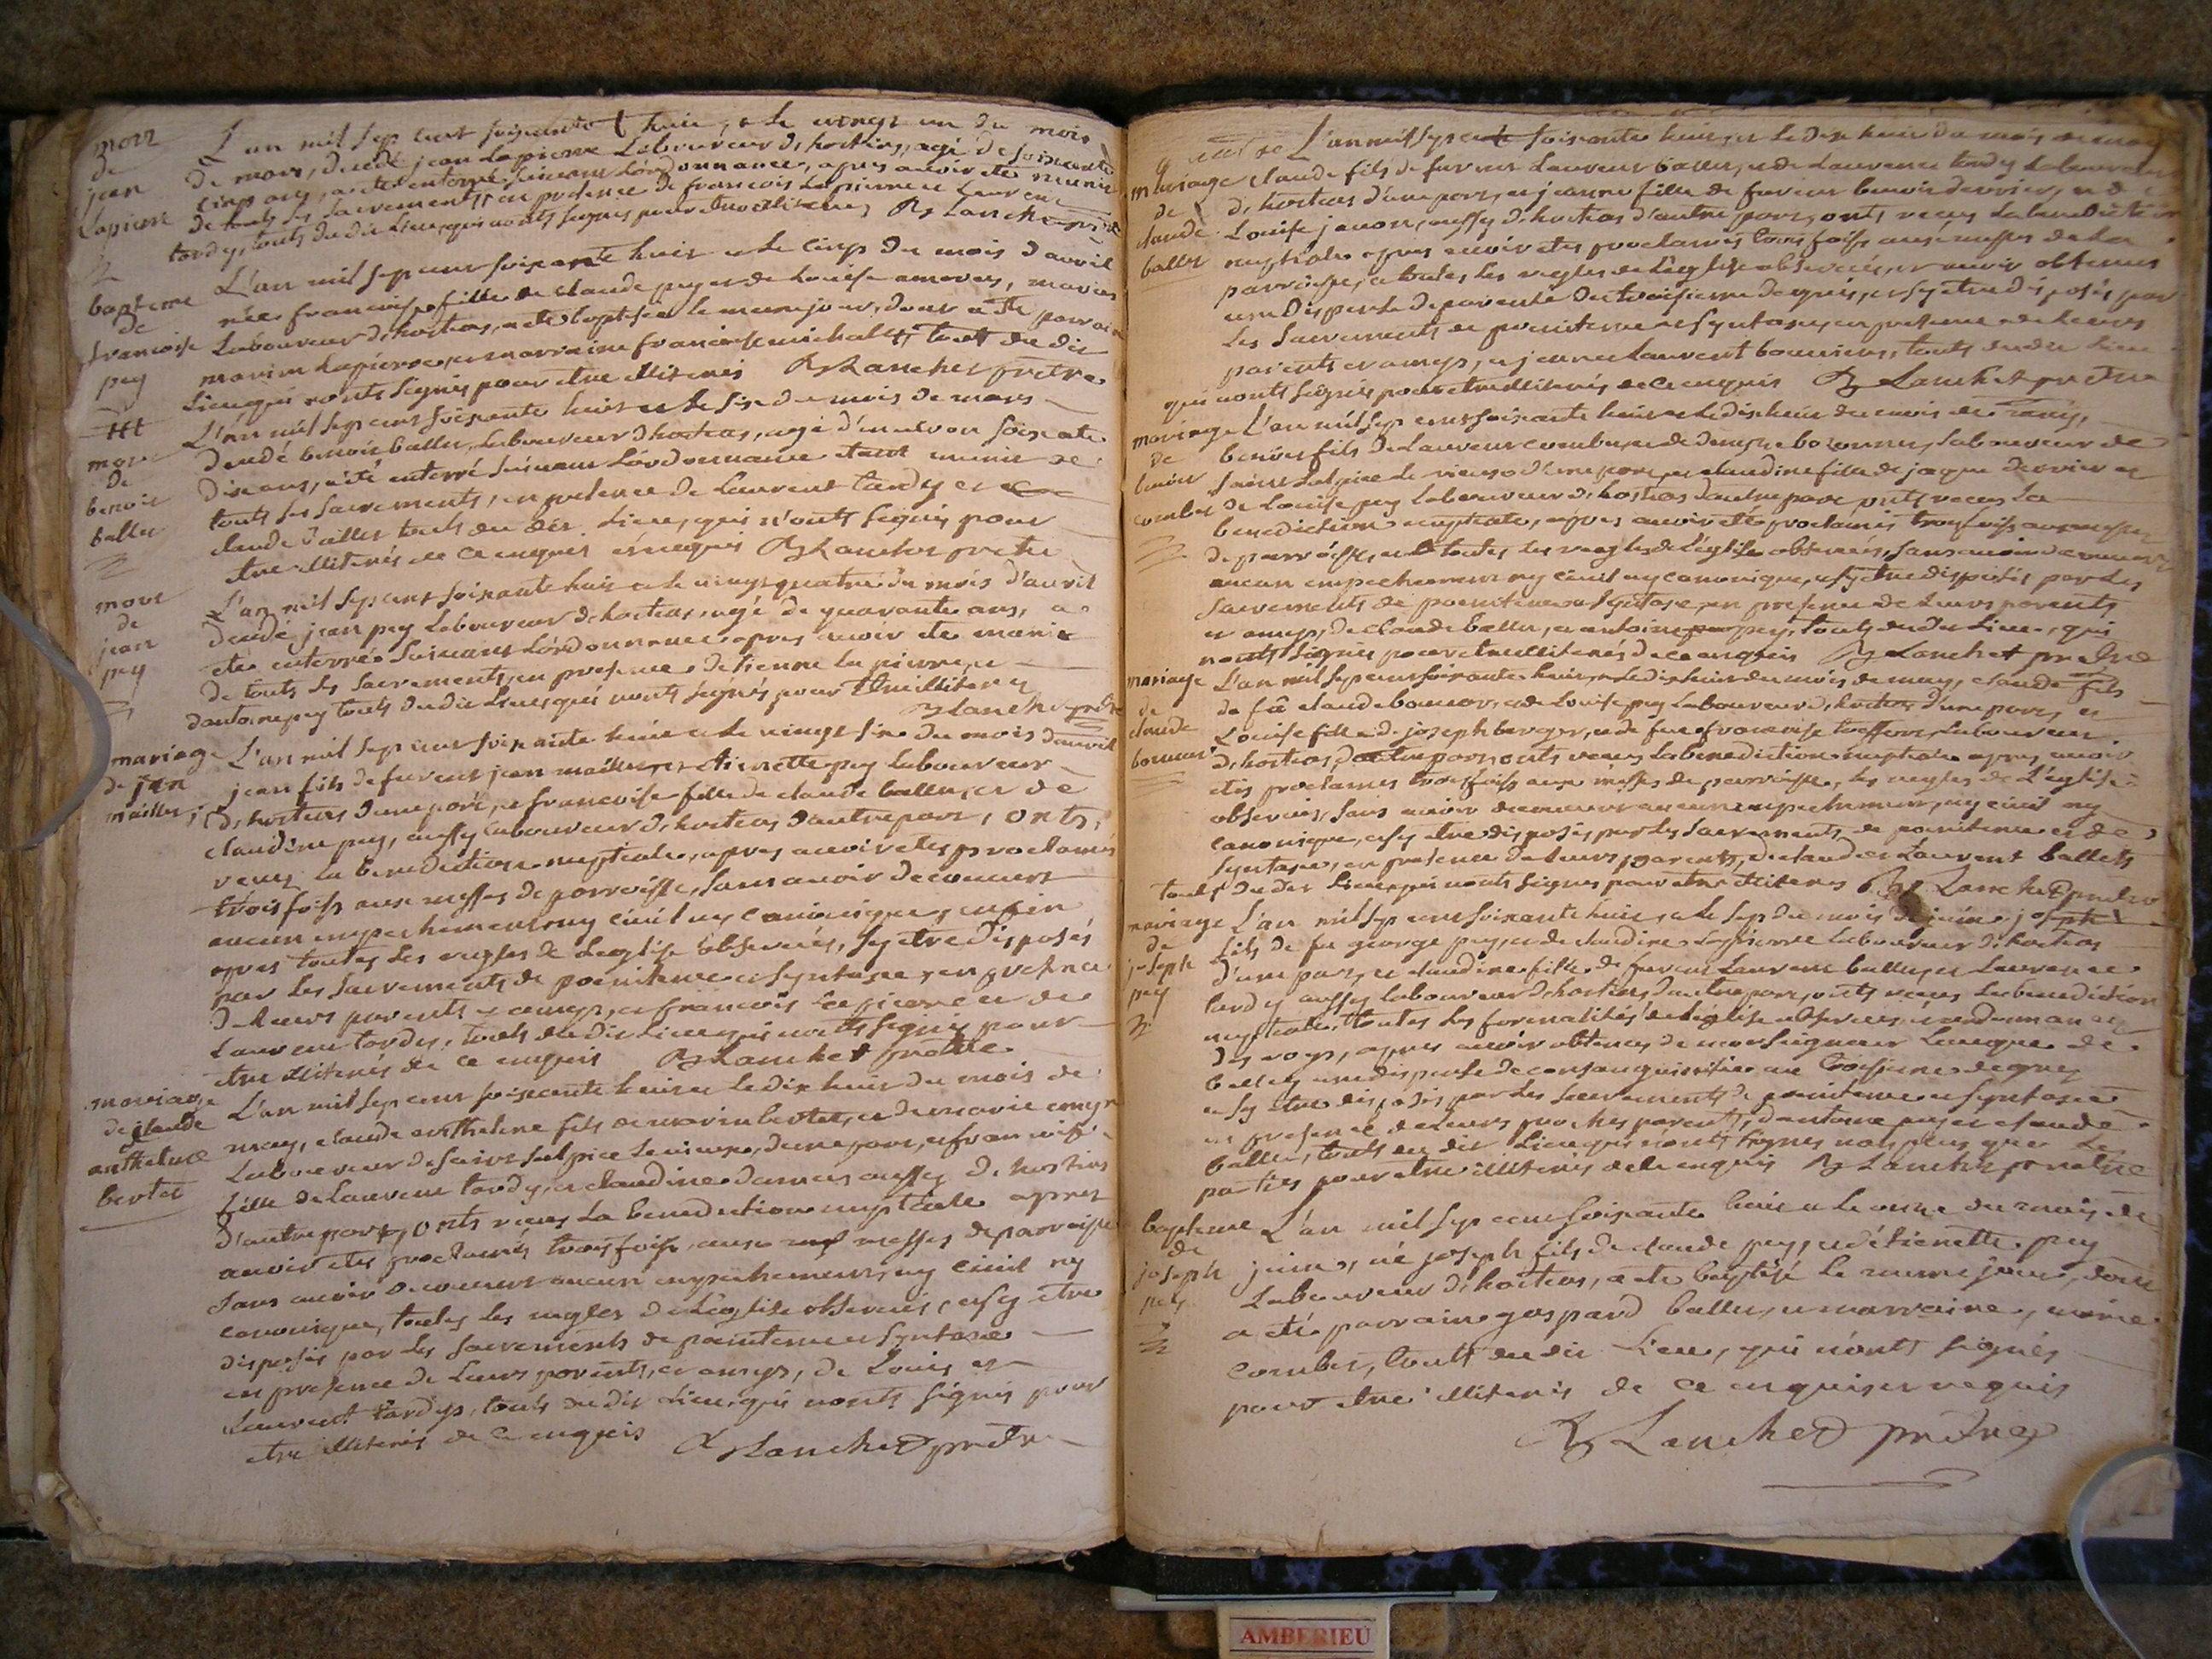 mort
de
jean
Lapierre
L'an mil sep cent soixante huit, et le vingt un du mois
de mars, decedé jean Lapierre Laboureur d'hostias, agé de soixante
cinq ans, a eté enterré suivant L'ordonnance, apres avoir eté munie
de touts ses sacrements, en presence de francois Lapierre et Laurent
tardy, touts du dit Lieu, qui n'onts signes pour etre illiterés R Lanchet prêtre
bapteme
de
francoise
pey
L'an mil sep cent soixante huit et le cinq du mois d'avril
née francoise fille de claude pey et de Louise
Laboureur d'hostias, a eté baptisée le meme jour, dont a eté parrain
marin Lapierre, et marraine francoise michallet, touts du dit
Lieu, qui n'onts signés pour etre illiterés R Lanchet prêtre
mort
de
benoit
ballet
L'an mil sep cent soixante huit et le six du mois de mars
decedé benoit ballet, Laboureur d'hostias, agé d'environ soixante
dix ans, a été enterré suivant L'ordonnance etant munie de
touts ses sacrements, en presence de Laurent tardy et
claude ballet touts du dit Lieu, qui n'onts signés pour
etre illiterés de ce enquis et requis R Lanchet prêtre
mort
de
jean
pey
L'an mil sep cent soixante huit et le vingt quatre du mois d'avril
decedé jean pey Laboureur d'hostias, agé de quarante ans, a
eté enterré suivant L'ordonnance apres avoir eté munie
de touts ses sacrements, en presence d'etienne Lapierre, et
d'antoine pey touts du dit Lieu, qui n'onts signés pour etre illiterés
R Lanchet prêtre
mariage
de jean
maillet
L'an mil sep cent soixante huit et le vingt six du mois d'avril
jean fils de feu jean maillet et etiennette pey laboureur
d'hostias d'une part, et francoise fille de claude ballet, et de
claudine pey, aussy laboureur d'hostias d'autre part, onts
reçus la benediction nuptiale, apres avoir etes proclamés
trois fois aux messes de parroisse, sans avoir decouvert
aucun empechement ny civil ny canonique, enfin
apres toutes les regles de L'eglise observées, s'y etre disposés
par les sacrements de poenitence et Syntaxe, en presence
de Leurs parents et amys, et francois Lapierre et de
Laurent tardy, touts du dit Lieu qui n'onts signés pour
etre illiterés de ce enquis R Lanchet prêtre
mariage
de claude
anthelme
bertet
L'an mil sep cent soixante huit et le dix huit du mois de
may, claude anthelme fils de marin bertet, et de marie
Laboureur de saint sulpice le vieux, d'une part, et francoise
fille de Laurent tardy, et claudine aussy d'hostias
d'autre part, onts reçus la benediction nuptiale apres
avoir etes proclamés trois fois aux messes de parroisse
sans avoir decouvert aucun empechement ny civil ny
canonique, toutes les regles de L'eglise observées, et s'y etre
disposés par les sacrements de poenitence et Syntaxe
en presence de Leurs parents, et amys, de Louis et
Laurent tardys, touts du dit Lieu, qui n'onts signés pour
etre illiterés de ce enquis R Lanchet prêtre
mariage
de
claude
ballet
L'an mil sep cent soixante huit, et le dix huit du mois de may
claude fils de feu Laurent ballet, et de Laurence tardy Laboureur
d'hostias d'une part, et jeanne fille de feu benoit dervier, et de
Louise janon, aussy d'hostias d'autre part, onts reçus La benediction
nuptiale apres avoir etes proclamés trois fois aux messes de La
parroisse, et toutes les regles de L'eglise observées, et avoir obtenus
une dispense de parenté du troisieme degrés, et s'y etre disposés par
Les sacrements de poenitence et Syntaxe, en presence de Leurs
parents et amys, et jean Laurent bouvier, touts du dit Lieu
qui n'onts signés pour etre illiterés de ce enquis R Lanchet prêtre
mariage
de
benoit
combet
L'an mil sep cent soixante huit et le dix huit du mois de may,
benoit fils de Laurent combet, et de laboureur de
saint sulpice le vieux d'une part, et claudine fille de jaque dervier et
de Louise pey Laboureur d'hostias d'autre part, onts reçus La
benediction nuptiale, apres avoir eté proclamés trois fois aux messes
de parroisse, et toutes les regles de L'eglise observées, sans avoir decouvert
aucun empechement ny civil ny canonique, et s'y etre disposés par Les
sacrements de poenitence et Syntaxe, en presence de Leurs parents
et amys, de claude ballet, et antoine pey, touts du dit Lieu, qui
n'onts signés pour etre illiterés de ce enquis R Lanchet prêtre
mariage
de
claude
L'an mil sep cent soixante huit, et le dix huit du mois de may, claude fils
de fû claude et de Louise pey Laboureur d'hostias d'une part, et
Louise fille de joseph berger, et de feue francoise Laboureur
d'hostias d'autre part, onts reçus La benediction nuptiale apres avoir
etes proclamés trois fois aux messes de parroisse, les regles de L'eglise
observées, sans avoir decouvert aucun empechement, ny civil ny
canonique, et s'y etre disposés par les sacrements de poenitence et de
Syntaxe, en presence de Leurs parents, de claude et Laurent ballets
touts du dit Lieu, qui n'onts signes pour etre illiterés R Lanchet prêtre
mariage
de
joseph
pey
L'an mil sep cent soixante huit, et le sep du mois de juin joseph
fils de feu george pey, et de claudine Lapierre Laboureur d'hostias
d'une part, et claudine fille de feu Laurent ballet, et Laurence
tardy aussy laboureur d'hostias d'autre part, onts reçus La benediction
nuptiale, toutes les formalités de L'eglise observées, et ordonnances
des roys, apres avoir obtenus de monseigneur Leveque de
belley une dispense de consanguinitée au troisieme degrez
et s'y etre disposés par Les sacrements de poenitence et Syntaxe
en presence de Leurs proches parents, d'antoine pey et claude
ballet, touts du dit Lieu qui n'onts signes non plus que Les
parties pour etre illiterés de ce enquis R Lanchet prêtre
bapteme
de
joseph
pey
L'an mil sep cent soixante huit et le onze du mois de
juin, né joseph fils de claude pey, et d'etienette pey
Laboureur d'hostias, a eté baptisé le meme jour, dont
a eté parrain gaspard ballet, et marraine,
combet, touts du dit Lieu, qui n'onts signés
pour etre illiterés de ce enquis et requis
R Lanchet prêtre
AMBERIEU